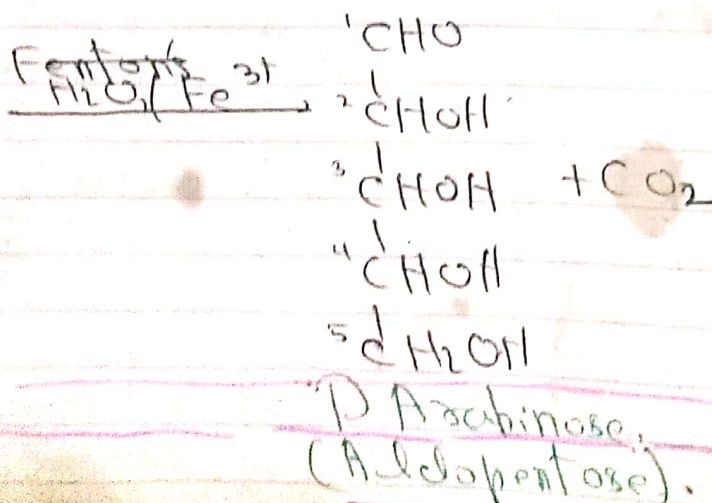 ¹CHO
Fenton's
H₂O₂/Fe³⁺ ²CHOH
³CHOH + CO₂
⁴CHOH
⁵CH₂OH
D Arabinose.
(Aldopentose).